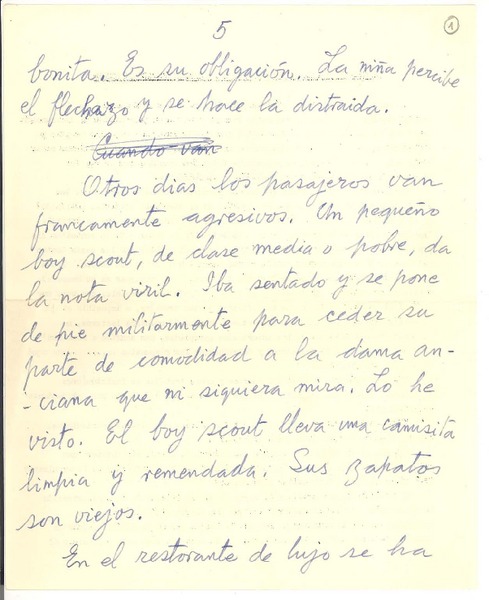 5
1
bonita. Es su obligación. La niña percibe
el flechazo y se hace la distraida.
Cuando van
Otros dias los pasajeros van
francamente agresivos. Un pequeño
boy scout, de clase media o pobre, da
la nota viril. Iba sentado y se pone
de pie militarmente para ceder su
parte de comodidad a la dama an-
-ciana que ni siquiera mira. Lo he
visto. El boy scout lleva una camisita
limpia y remendada. Sus zapatos
son viejos.
En el restorante de lujo se ha